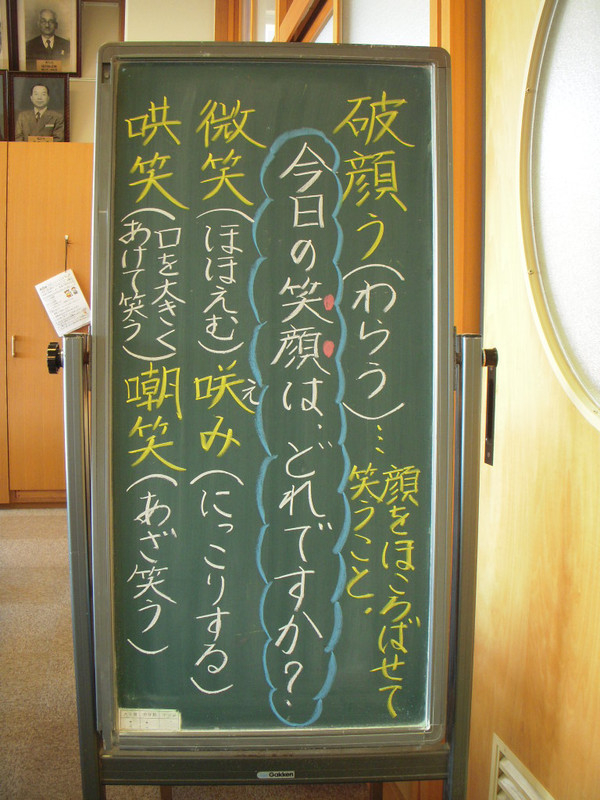 破顔う(わらう)…顔をほころばせて
笑うこと.
今日の笑顔は、どれですか?
微笑(ほほえむ)
咲み(にっこりする)
え
哄笑(口を大きく
あけて笑う)
嘲笑(あざ笑う)
Gakken